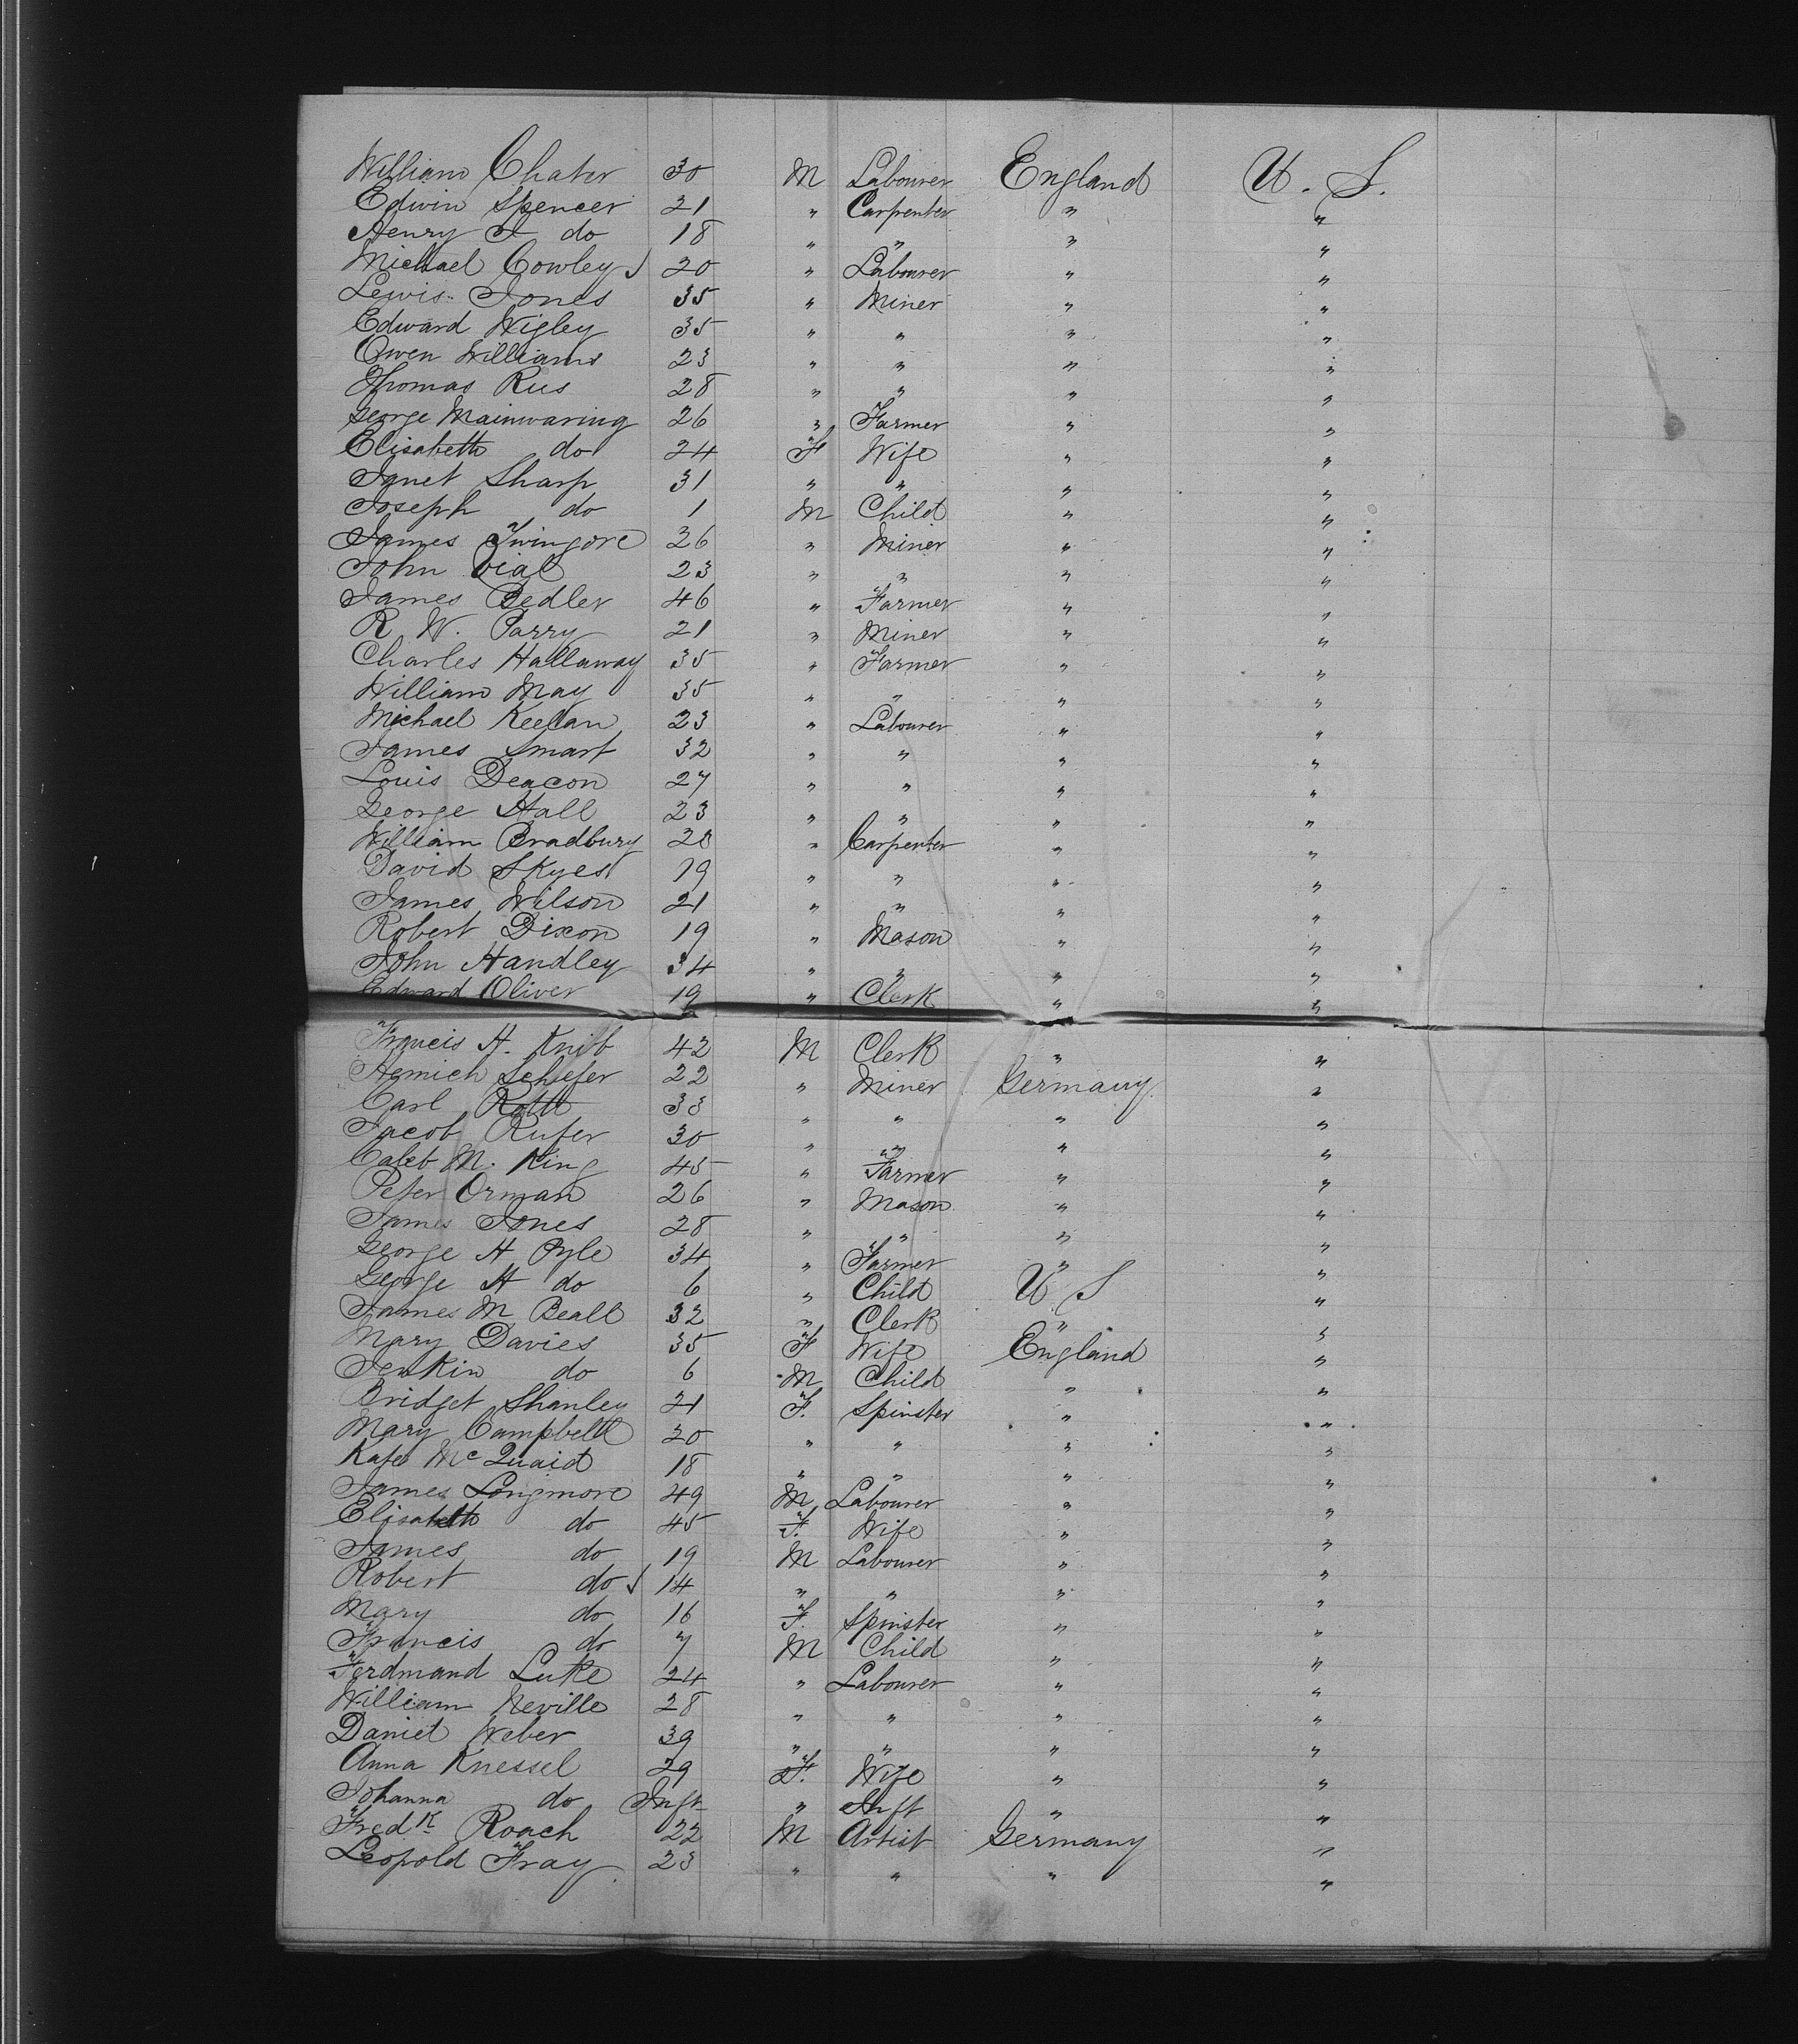 William Chater 30 M Labourer England U. S.
Edwin Spencer 21 " Carpenter " "
Henry A do 18 " " " "
Michael Cowley 20 " Labourer " "
Lewis Jones 35 " Miner " "
Edward Wigley 35 " " " "
Owen Williams 23 " " " "
Thomas Rees 28 " " " "
George Mainwaring 26 " Farmer " "
Elisabeth do 24 F Wife " "
Janet Sharp 31 " " " "
Joseph do 1 M Child " "
James 26 " Miner " "
John Vial 23 " " " "
James Pedler 46 " Farmer " "
R W. Parry 21 " Miner " "
Charles Hallaway 35 " Farmer " "
William May 35 " " " "
Michael Keelan 23 " Labourer " "
James Smart 32 " " " "
Louis Deacon 27 " " " "
George Hall 23 " " " "
William Bradbury 28 " Carpenter " "
David Skyes 19 " " " "
James Wilson 21 " " " "
Robert Dixon 19 " Mason " "
John Handley 34 " " " "
Edward Oliver 19 " Clerk " "
Francis H. Knib 42 M Clerk " "
Hemich Schefer 22 " Miner Germany "
Carl Roth 33 " " " "
Jacob Rufer 30 " " " "
Caleb M. King 45 " Farmer " "
Peter Orman 26 " Mason " "
James Jones 28 " " " "
George H Pyle 34 " Farmer " "
George H do 6 " Child U S "
James M Beall 32 " Clerk " "
Mary Davies 35 F Wife England "
Jenkin do 6 M Child " "
Bridget Shanley 21 F. Spinster " "
Mary Campbell 20 " " " "
Kate McQuaid 18 " " " "
James Longmore 49 M Labourer " "
Elisabeth do 45 F. Wife " "
James do 19 M Labourer " "
Robert do 14 " " " "
Mary do 16 F. Spinster " "
Francis do 7 M Child " "
Ferdmand Luke 24 " Labourer " "
William Neville 28 " " " "
Daniel Weber 39 " " " "
Anna Knessel 29 F. Wife " "
Johanna do Inft " Inft " "
Fredk Roach 22 M Artist Germany "
Leopold Fray 23 " " " "